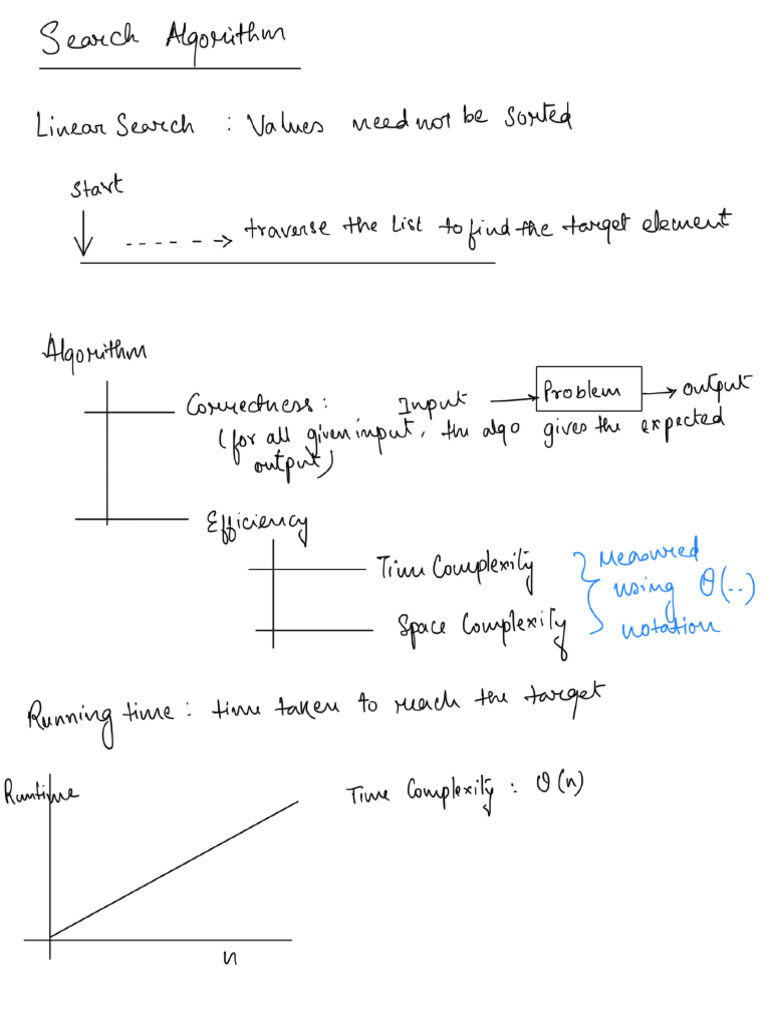 Search Algorithm
Linear Search : Values need not be sorted
Start
traverse the list to find the target element
Algorithm
Correctness : Input Problem output
(for all given input, the algo gives the expected
output)
Efficiency
Time Complexity
Space Complexity
measured
using O(..)
notation
Running time : time taken to reach the target
Runtime
Time Complexity : O(n)
n